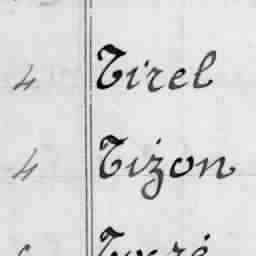 4 Tirel
4 Tizon